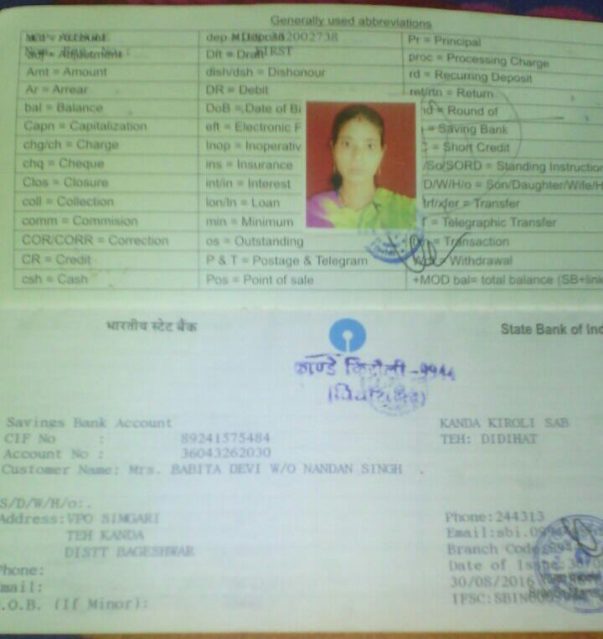 Generally used abbreviations
dep = Deposit Pr = Principal
adj = Adjustment Dft = Draft FIRST proc = Processing Charge
Amt = Amount dish/dsh = Dishonour rd = Recurring Deposit
Ar = Arrear DR = Debit ret/rtn = Return
bal = Balance DoB = Date of Round of
Capn = Capitalization eft = Electronic = Saving Bank
chg/ch = Charge Inop = = Short Credit
chq = Cheque ins = Insurance /So/SORD = Standing Instruction
Clos = Closure int/in = Interest D/W/H/o = Son/Daughter/Wife/H
coll = Collection lon/ln = Loan trf/xfer = Transfer
comm = Commision min = Minimum = Telegraphic Transfer
COR/CORR = Correction os = Outstanding = Transaction
CR = Credit P & T = Postage & Telegram = Withdrawal
csh = Cash Pos = Point of sale +MOD bal= total balance (SB+link
भारतीय स्टेट बैंक State Bank of Ind
काण्डे किरौली -9944
Savings Bank Account KANDA KIROLI SAB
CIF No : 89241575484 TEH: DIDIHAT
Account No : 36043262030
Customer Name: Mrs. BABITA DEVI W/O NANDAN SINGH .
S/D/W/H/o:.
Address:VPO SIMGARI Phone:244313
TEH KANDA Email:sbi.
DISTT BAGESHWAR Branch Code
Phone: Date of Issue:
Email: 30/08/2016
D.O.B. (If Minor): IFSC: